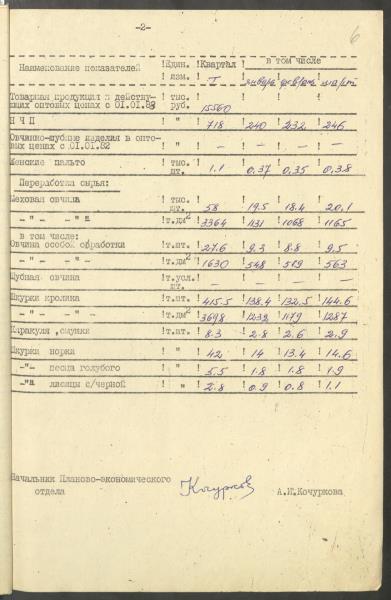 -2-
6
Наименование показателей ! Един. изм. ! Квартал I ! в том числе
! январь ! февраль ! март
Товарная продукция в действу-
ющих оптовых ценах с 01.01.82 ! тыс. руб. ! 15560
Н Ч П ! " ! 718 ! 240 ! 232 ! 246
Овчинно-шубные изделия в опто-
вых ценах с 01.01.82 ! " ! – ! – ! – ! –
Женские пальто ! тыс. шт. ! 1.1 ! 0,37 ! 0,35 ! 0,38
Переработка сырья:
Меховая овчина ! тыс. шт. ! 58 ! 19.5 ! 18.4 ! 20,1
-"- -"- ! т.дм2 ! 3364 ! 1131 ! 1068 ! 1165
в том числе:
Овчина особой обработки ! т.шт. ! 27.6 ! 9.3 ! 8.8 ! 9,5
-"- -"- -"- ! т.дм2 ! 1630 ! 548 ! 519 ! 563
Шубная овчина ! т.усл. шт. ! – ! – ! – ! –
Шкурки кролика ! т.шт. ! 415.5 ! 138.4 ! 132.5 ! 144.6
-"- -"- ! т.дм2 ! 3698 ! 1232 ! 1179 ! 1287
Каракуля, смушки ! т.шт. ! 8.3 ! 2.8 ! 2.6 ! 2.9
Шкурки норки ! " ! 42 ! 14 ! 13.4 ! 14.6
-"- песца голубого ! " ! 5.5 ! 1.8 ! 1.8 ! 1.9
-"- лисицы с/черной ! " ! 2.8 ! 0.9 ! 0.8 ! 1.1
Начальник Планово-экономического
отдела Кочурков А.И.Кочуркова